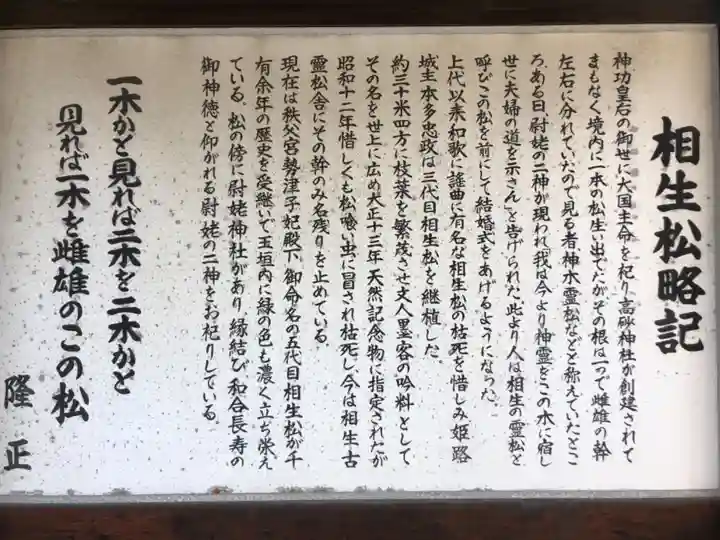 相生松略記
神功皇后の御世に大国主命を祀り高砂神社が創建されて
まもなく境内に一本の松生い出でたがその根は一つで雌雄の幹
左右に分れていたので見る者神木霊松などと称えていたとこ
ろ、ある日、尉姥の二神が現われ「我は今より神霊をこの木に宿し
世に夫婦の道を示さん」と告げられた。此より人は相生の霊松と
呼びこの松を前にして結婚式をあげるようになった。
上代以来和歌に謡曲に有名な相生松の枯死を惜しみ姫路
城主本多忠政は三代目相生松を継植した。
約三十米四方に枝葉を繁茂させ文人墨客の吟料として
その名を世上に広め大正十三年天然記念物に指定されたが
昭和十二年惜しくも松喰い虫に冒され枯死し今は相生古
霊松舎にその幹のみ名残りを止めている。
現在は秩父宮勢津子妃殿下御命名の五代目相生松が千
有余年の歴史を受継いで玉垣内に緑の色も濃く立ち栄え
ている。松の傍に尉姥神社があり縁結び和合長寿の
御神徳と仰がれる尉姥の二神をお祀りしている。
一木かと見れば二木を二木かと
見れば一木を雌雄のこの松
隆正